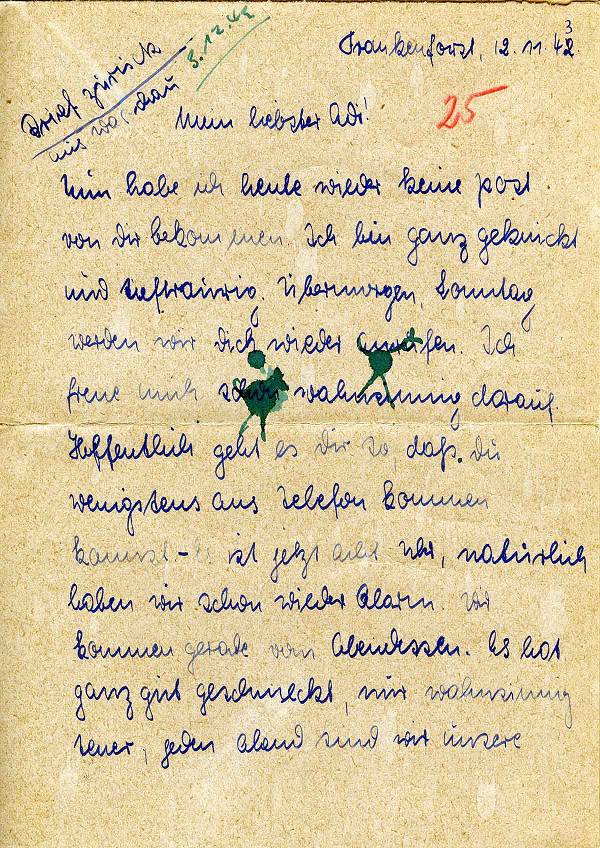 Brief zurück
aus Warschau
3.12.42
Frankenforst, 12.11.42.
3
25
Mein liebster Adi!
Nun habe ich heute wieder keine post
von dir bekommen. Ich bin ganz geknickt
und tieftraurig. Übermorgen, Sonntag
werden wir dich wieder anrufen. Ich
freue mich schon wahnsinnig darauf.
Hoffentlich geht es dir so, daß du
wenigstens ans Telefon kommen
kannst. – Es ist jetzt acht Uhr, natürlich
haben wir schon wieder Alarm. Wir
kommen gerade vom Abendessen. Es hat
ganz gut geschmeckt, nur wahnsinnig
teuer, jeden Abend sind wir unsere